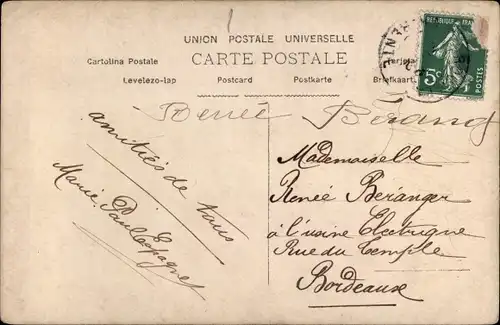 UNION POSTALE UNIVERSELLE
CARTE POSTALE
Cartolina Postale
Levelezo-lap
Postcard
Postkarte
Briefkaart
REPUBLIQUE
5c
Renée Béranger
amitiés de tous
Marie Paul Espagnet
Mademoiselle
Renée Béranger
à l'usine Electrique
Rue du Temple
Bordeaux